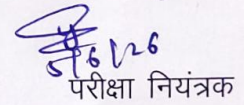 5/6/26
परीक्षा नियंत्रक